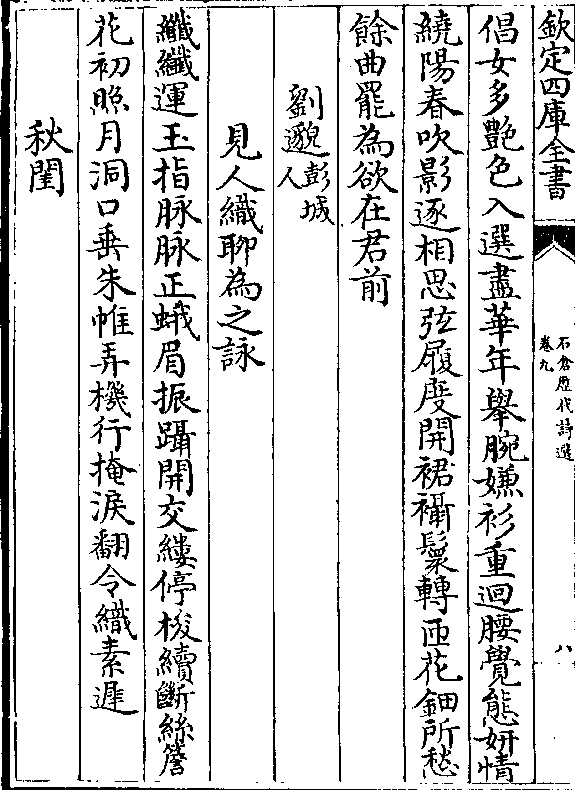 欽定四庫全書
石倉歴代詩選
卷九
八
倡女多艷色入選盡華年舉腕嫌衫重迴腰覺態妍情
繞陽春吹影逐相思弦履度開裙襵鬟轉匝花鈿所愁
餘曲罷為欲在君前
劉邈彭城人
見人織聊為之詠
纖纖運玉指脉脉正蛾眉振躡開交縷停梭續斷絲簷
花初照月洞口垂朱帷弄機行掩淚翻令織素遲
秋閨